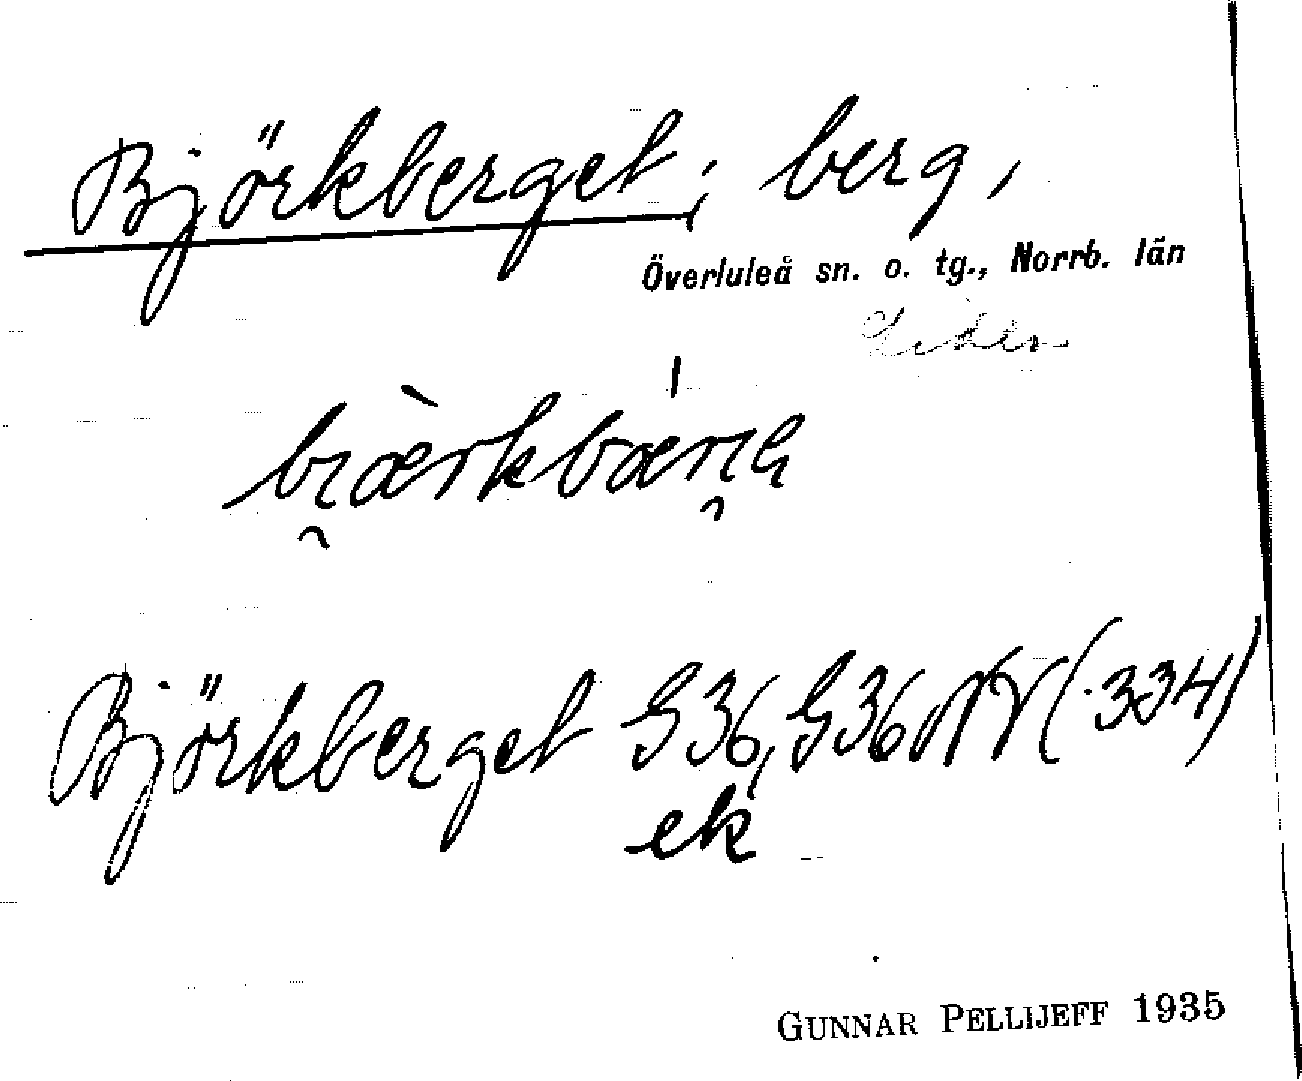 Björkberget; berg,
Överluleå sn. o. tg., Norrb. län
Björkberget G36, G36 NV (334)
ek
GUNNAR PELLIJEFF 1935